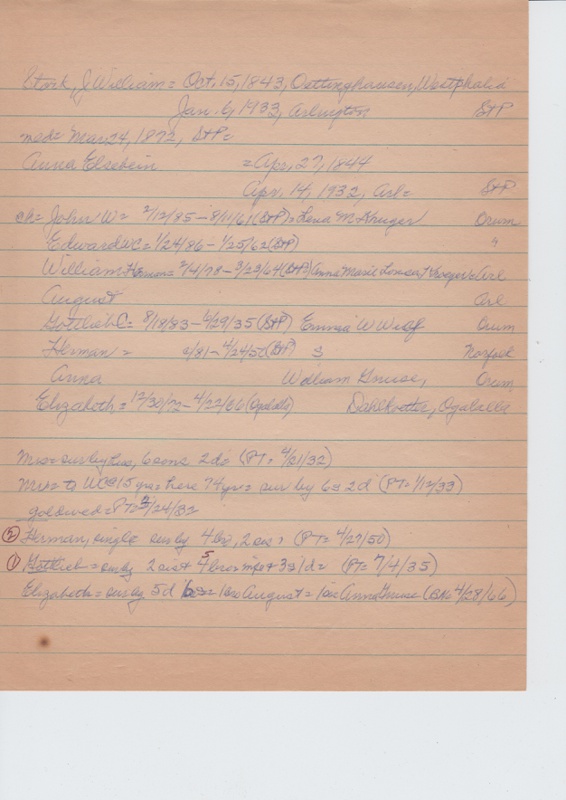 Stork, J William = Oct. 15, 1843, Oettinghausen, Westphalia
Jan. 6, 1933, Arlington St P
mad = Mar 24, 1872, St P =
Anna Elsebein = Apr. 27, 1844
Apr. 14, 1932, Arl = St P
ch = John W = 2/12/85 - 8/11/61 (St P) = Lena M Kruger Orum
Edward WC = 1/24/86 - 1/25/62 (St P) "
William Herman = 2/4/78 - 3/23/64 (St P) Anna Marie Louisa Arl
August Arl
Gottlieb C = 8/18/83 - 6/29/35 (St P) Emma W Wulf Orum
Herman = /81 - 4/24/50 (St P) S Norfolk
Anna William Gruse, Orum
Elizabeth = 12/30/72 - 4/22/66 (Ogalalla) Dahlkoetter, Ogalalla
Mrs = sur by hus, 6 sons 2 ds (PT = 4/21/32)
Mr = to US @ 15 yrs = here 74 yrs = sur by 6 s 2 d (PT = 1/12/33)
gold wed = PT = 3/24/32
② Herman, single sur by 4 bro, 2 sis = (PT = 4/27/50)
① Gottlieb = sur by 2 sis + 5 bros + 3 s 1 d = (PT = 7/4/35)
Elizabeth = sur by 5 d = 1 bro August = 1 sis Anna Gruse (4/28/66)